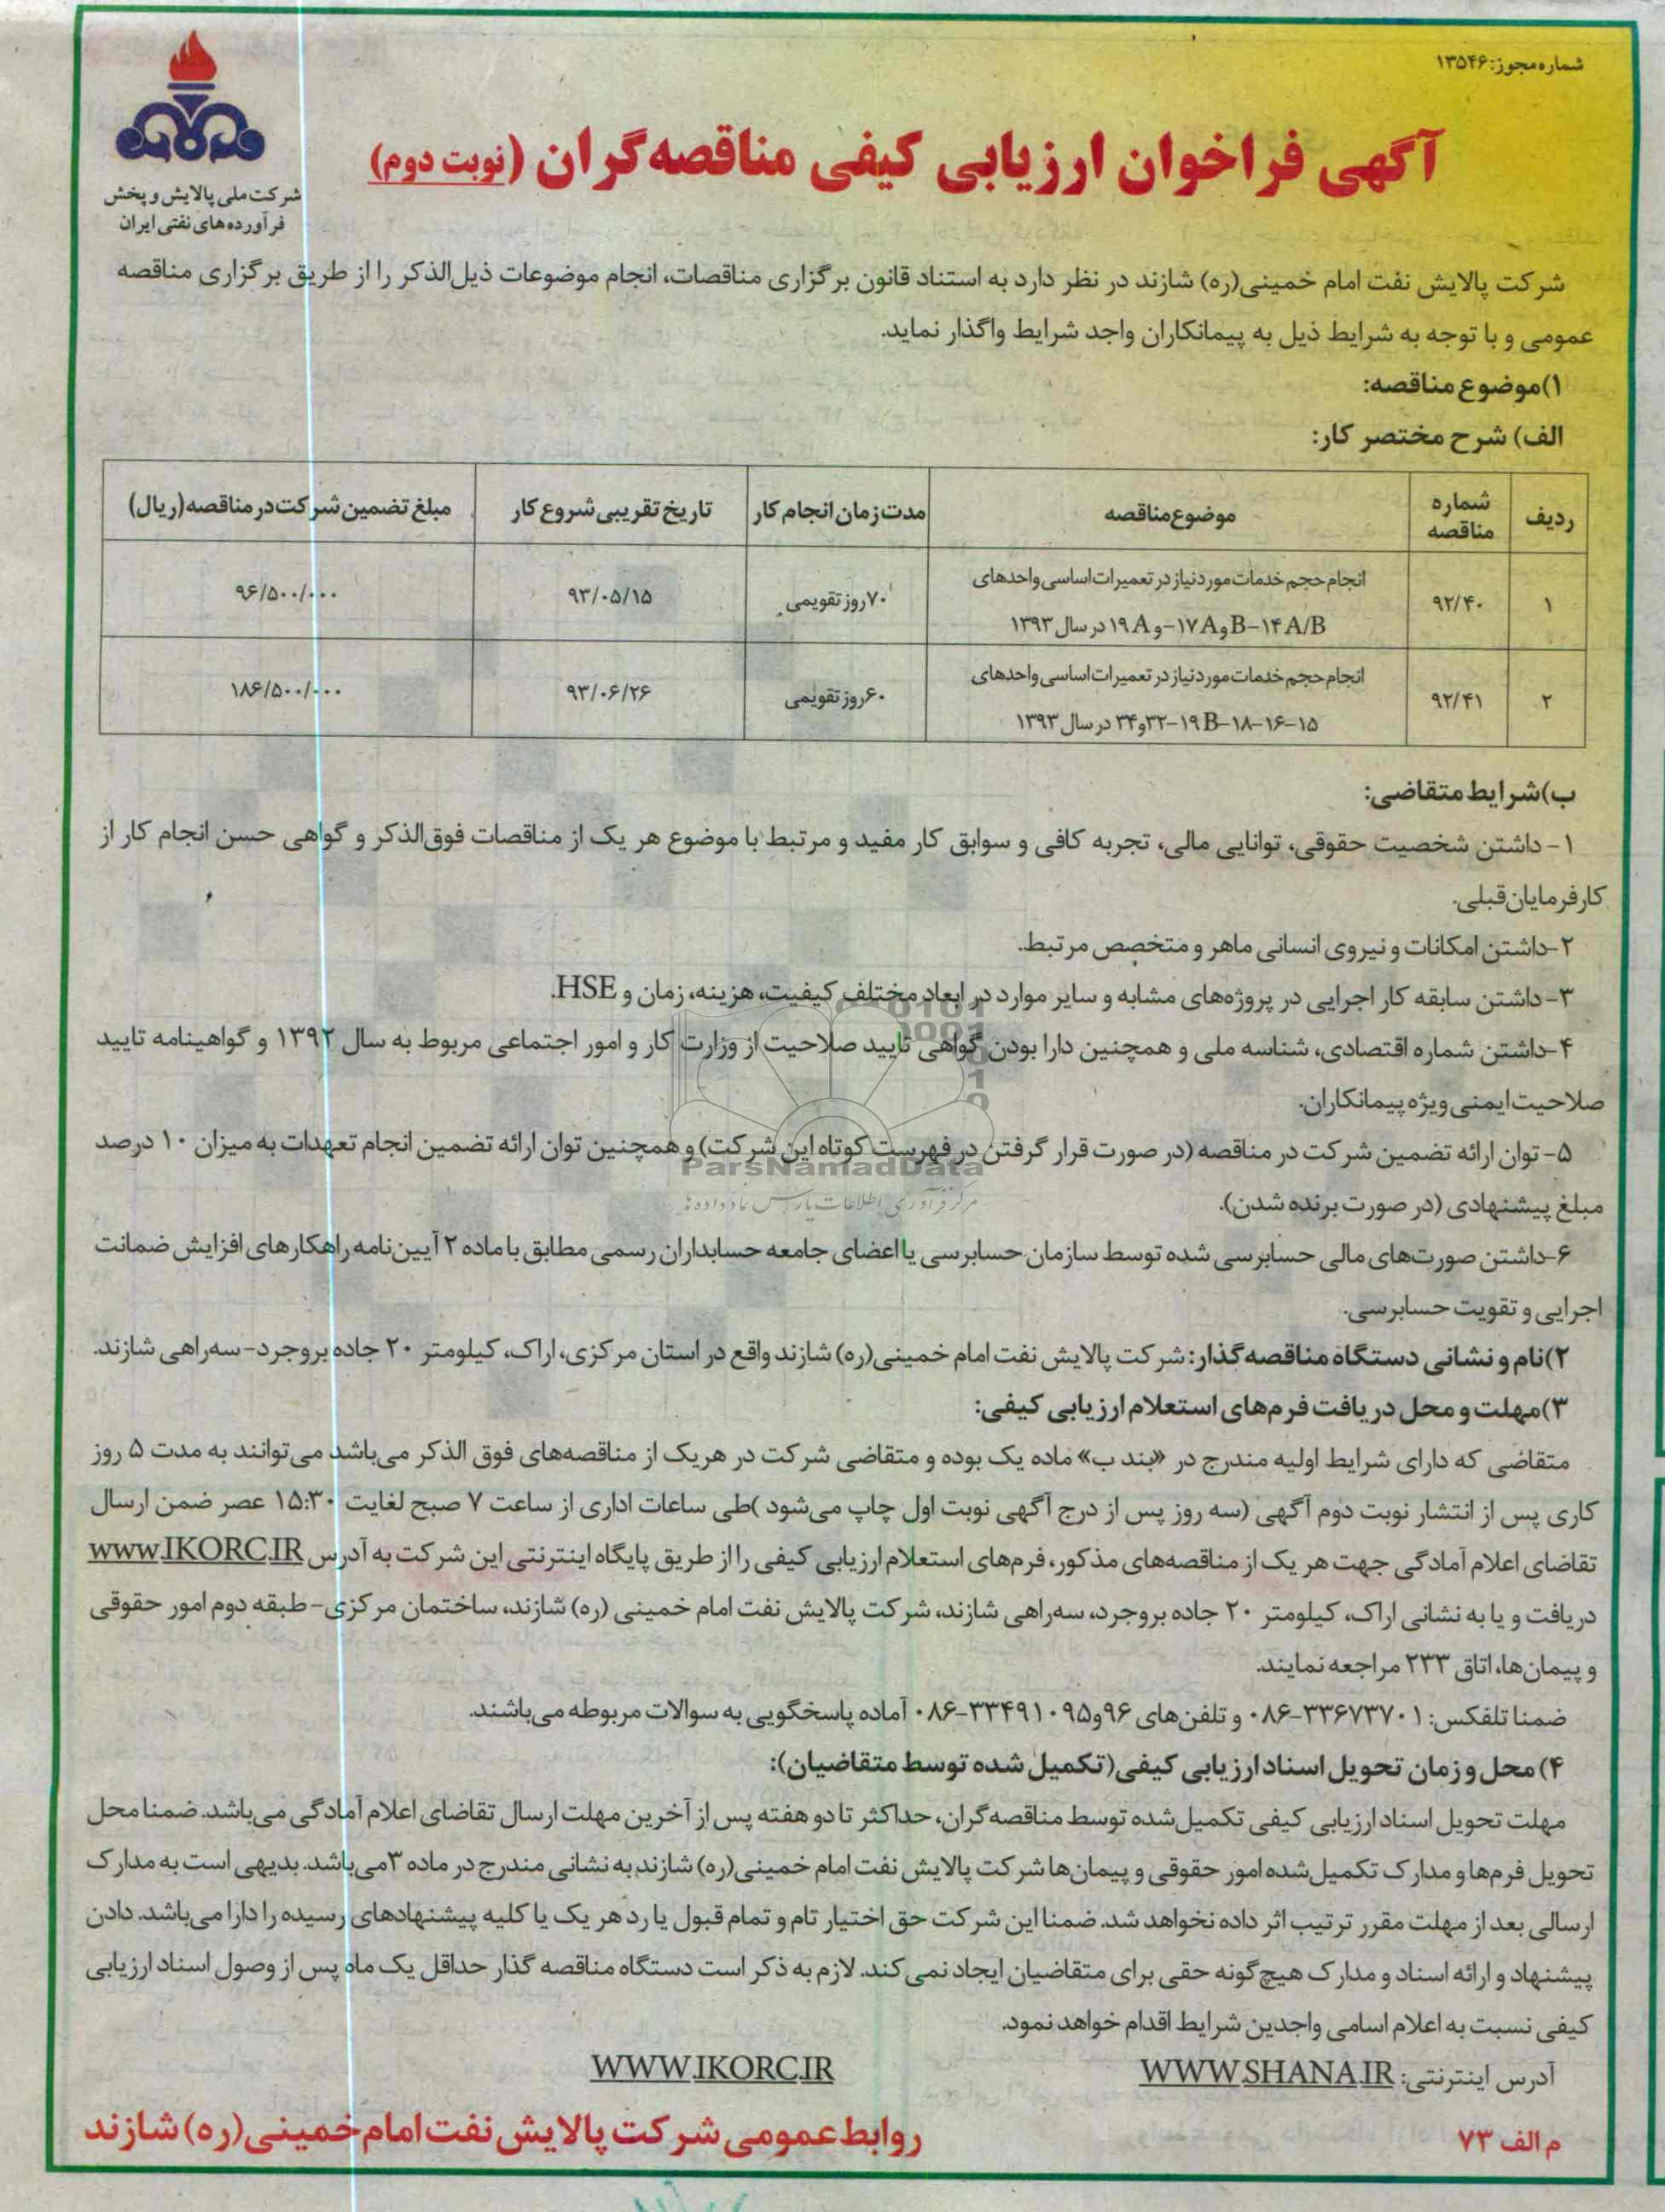 شماره مجوز: ۱۳۵۴۶
آگهی فراخوان ارزیابی کیفی مناقصه‌گران (نوبت دوم)
شرکت ملی پالایش و پخش
فرآورده‌های نفتی ایران
شرکت پالایش نفت امام خمینی(ره) شازند در نظر دارد به استناد قانون برگزاری مناقصات، انجام موضوعات ذیل‌الذکر را از طریق برگزاری مناقصه
عمومی و با توجه به شرایط ذیل به پیمانکاران واجد شرایط واگذار نماید.
۱)موضوع مناقصه:
الف) شرح مختصر کار:
ردیف | شماره مناقصه | موضوع مناقصه | مدت زمان انجام کار | تاریخ تقریبی شروع کار | مبلغ تضمین شرکت در مناقصه (ریال)
۱ | ۹۲/۴۰ | انجام حجم خدمات مورد نیاز در تعمیرات اساسی واحدهای
B-۱۴A/B و ۱۷A- و ۱۹A در سال ۱۳۹۳ | ۷۰ روز تقویمی | ۹۳/۰۵/۱۵ | ۹۶/۵۰۰/۰۰۰
۲ | ۹۲/۴۱ | انجام حجم خدمات مورد نیاز در تعمیرات اساسی واحدهای
۱۵-۱۶-۱۸-۱۹B-۳۲ و ۳۴ در سال ۱۳۹۳ | ۶۰ روز تقویمی | ۹۳/۰۶/۲۶ | ۱۸۶/۵۰۰/۰۰۰
ب)شرایط متقاضی:
۱- داشتن شخصیت حقوقی، توانایی مالی، تجربه کافی و سوابق کار مفید و مرتبط با موضوع هر یک از مناقصات فوق‌الذکر و گواهی حسن انجام کار از
کارفرمایان قبلی.
۲-داشتن امکانات و نیروی انسانی ماهر و متخصص مرتبط.
۳- داشتن سابقه کار اجرایی در پروژه‌های مشابه و سایر موارد در ابعاد مختلف کیفیت، هزینه، زمان و HSE.
۴-داشتن شماره اقتصادی، شناسه ملی و همچنین دارا بودن گواهی تایید صلاحیت از وزارت کار و امور اجتماعی مربوط به سال ۱۳۹۲ و گواهینامه تایید
صلاحیت ایمنی ویژه پیمانکاران.
۵- توان ارائه تضمین شرکت در مناقصه (در صورت قرار گرفتن در فهرست کوتاه این شرکت) و همچنین توان ارائه تضمین انجام تعهدات به میزان ۱۰ درصد
ParsNamadData
مرکز فرآوری اطلاعات پارس نماد داده ها
مبلغ پیشنهادی (در صورت برنده شدن).
۶-داشتن صورت‌های مالی حسابرسی شده توسط سازمان حسابرسی یا اعضای جامعه حسابداران رسمی مطابق با ماده ۲ آیین‌نامه راهکارهای افزایش ضمانت
اجرایی و تقویت حسابرسی.
۲)نام و نشانی دستگاه مناقصه‌گذار: شرکت پالایش نفت امام خمینی(ره) شازند واقع در استان مرکزی، اراک، کیلومتر ۲۰ جاده بروجرد- سه‌راهی شازند.
۳)مهلت و محل دریافت فرم‌های استعلام ارزیابی کیفی:
متقاضی که دارای شرایط اولیه مندرج در «بند ب» ماده یک بوده و متقاضی شرکت در هریک از مناقصه‌های فوق الذکر می‌باشد می‌توانند به مدت ۵ روز
کاری پس از انتشار نوبت دوم آگهی (سه روز پس از درج آگهی نوبت اول چاپ می‌شود )طی ساعات اداری از ساعت ۷ صبح لغایت ۱۵:۳۰ عصر ضمن ارسال
تقاضای اعلام آمادگی جهت هر یک از مناقصه‌های مذکور، فرم‌های استعلام ارزیابی کیفی را از طریق پایگاه اینترنتی این شرکت به آدرس www.IKORC.IR
دریافت و یا به نشانی اراک، کیلومتر ۲۰ جاده بروجرد، سه‌راهی شازند، شرکت پالایش نفت امام خمینی (ره) شازند، ساختمان مرکزی- طبقه دوم امور حقوقی
و پیمان‌ها، اتاق ۲۳۳ مراجعه نمایند.
ضمنا تلفکس: ۳۳۶۷۳۷۰۱-۰۸۶ و تلفن‌های ۹۶و۳۳۴۹۱۰۹۵-۰۸۶ آماده پاسخگویی به سوالات مربوطه می‌باشند.
۴) محل و زمان تحویل اسناد ارزیابی کیفی(تکمیل شده توسط متقاضیان):
مهلت تحویل اسناد ارزیابی کیفی تکمیل‌شده توسط مناقصه‌گران، حداکثر تا دو هفته پس از آخرین مهلت ارسال تقاضای اعلام آمادگی می‌باشد. ضمنا محل
تحویل فرم‌ها و مدارک تکمیل‌شده امور حقوقی و پیمان‌ها شرکت پالایش نفت امام خمینی(ره) شازند به نشانی مندرج در ماده ۳می‌باشد. بدیهی است به مدارک
ارسالی بعد از مهلت مقرر ترتیب اثر داده نخواهد شد. ضمنا این شرکت حق اختیار تام و تمام قبول یا رد هر یک یا کلیه پیشنهادهای رسیده را دارا می‌باشد. دادن
پیشنهاد و ارائه اسناد و مدارک هیچ‌گونه حقی برای متقاضیان ایجاد نمی‌کند. لازم به ذکر است دستگاه مناقصه گذار حداقل یک ماه پس از وصول اسناد ارزیابی
کیفی نسبت به اعلام اسامی واجدین شرایط اقدام خواهد نمود.
آدرس اینترنتی: WWW.SHANA.IR WWW.IKORC.IR
م الف ۷۳
روابط عمومی شرکت پالایش نفت امام خمینی(ره) شازند